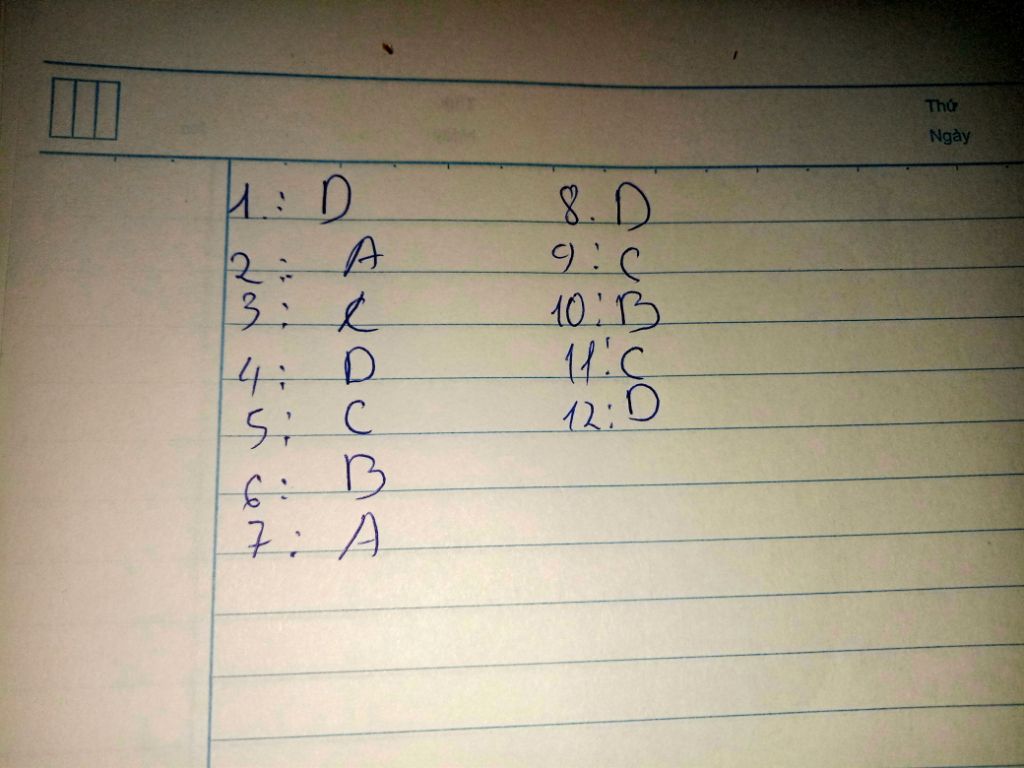 Thứ
Ngày
1.: D
2: A
3: C
4: D
5: C
6: B
7: A
8. D
9: C
10: B
11: C
12: D